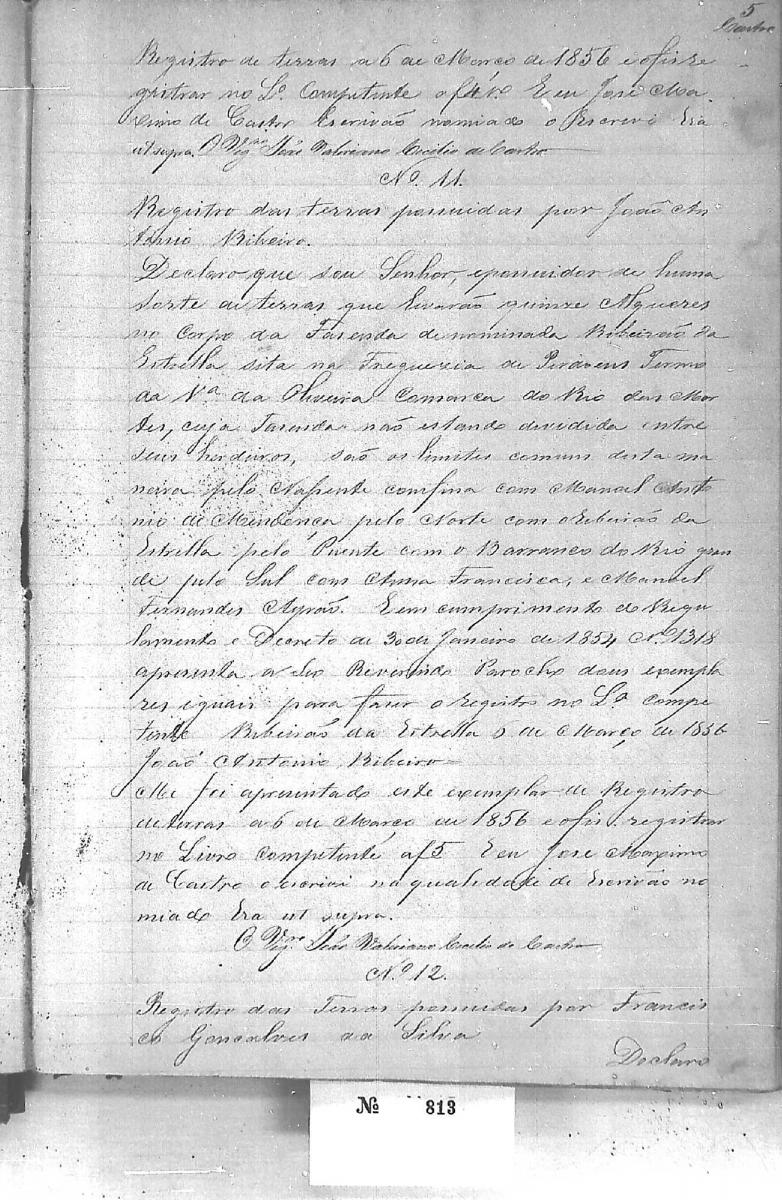 5
Castro
Registro de terras a 6 de Março de 1856 e o fis re
gistrar no Lº Competente a f 4 vº. E eu José Ma
ximo de Castro Escrivão nomiado o Escrevi Era
ut supra. O Vigrº João Valeriano Cecilio de Castro
Nº. 11.
Registro das terras possuidas por João An
tonio Ribeiro.
Declaro que sou Senhor, e possuidor de huma
sorte de terras que levarão quinze Alqueres
no Corpo da Fazenda denominada Ribeirão da
Estrella sita na Freguezia de Perdoens Termo
da Vª da Oliveira Comarca do Rio das Mor
tes, cuja Fasenda não estando dividida entre
seus herdeiros, são os limites comuns desta ma
neira pelo Nassente confina com Manoel Anto
nio de Mendonça pelo Norte com o Ribeirão da
Estrella pelo Puente com o Barranco do Rio gran
de pelo Sul com Anna Francisca, e Manoel
Fernandes Ayrão. E em cumprimento do Regu
lamento e Decreto de 30 de Janeiro de 1854 Nº 1318
apresenta a Seo Reverendo Parocho dous exempla
res iguais para faser o registro no Lº compe
tente Ribeirão da Estrella de Março de 1856
João Antonio Ribeiro
Me foi apresentado este exemplar de Registro
de terras a 6 de Março de 1856 e o fis registrar
no Livro competente a f 5 E eu José Maximo
de Castro o escrevi na qualidade de Escrivão no
miado Era ut supra.
O Vigrº João Valeriano Cecilio de Castro
Nº 12.
Registro das Terras possuidas por Francis
co Goncalves da Silva
Declaro
Nº 813